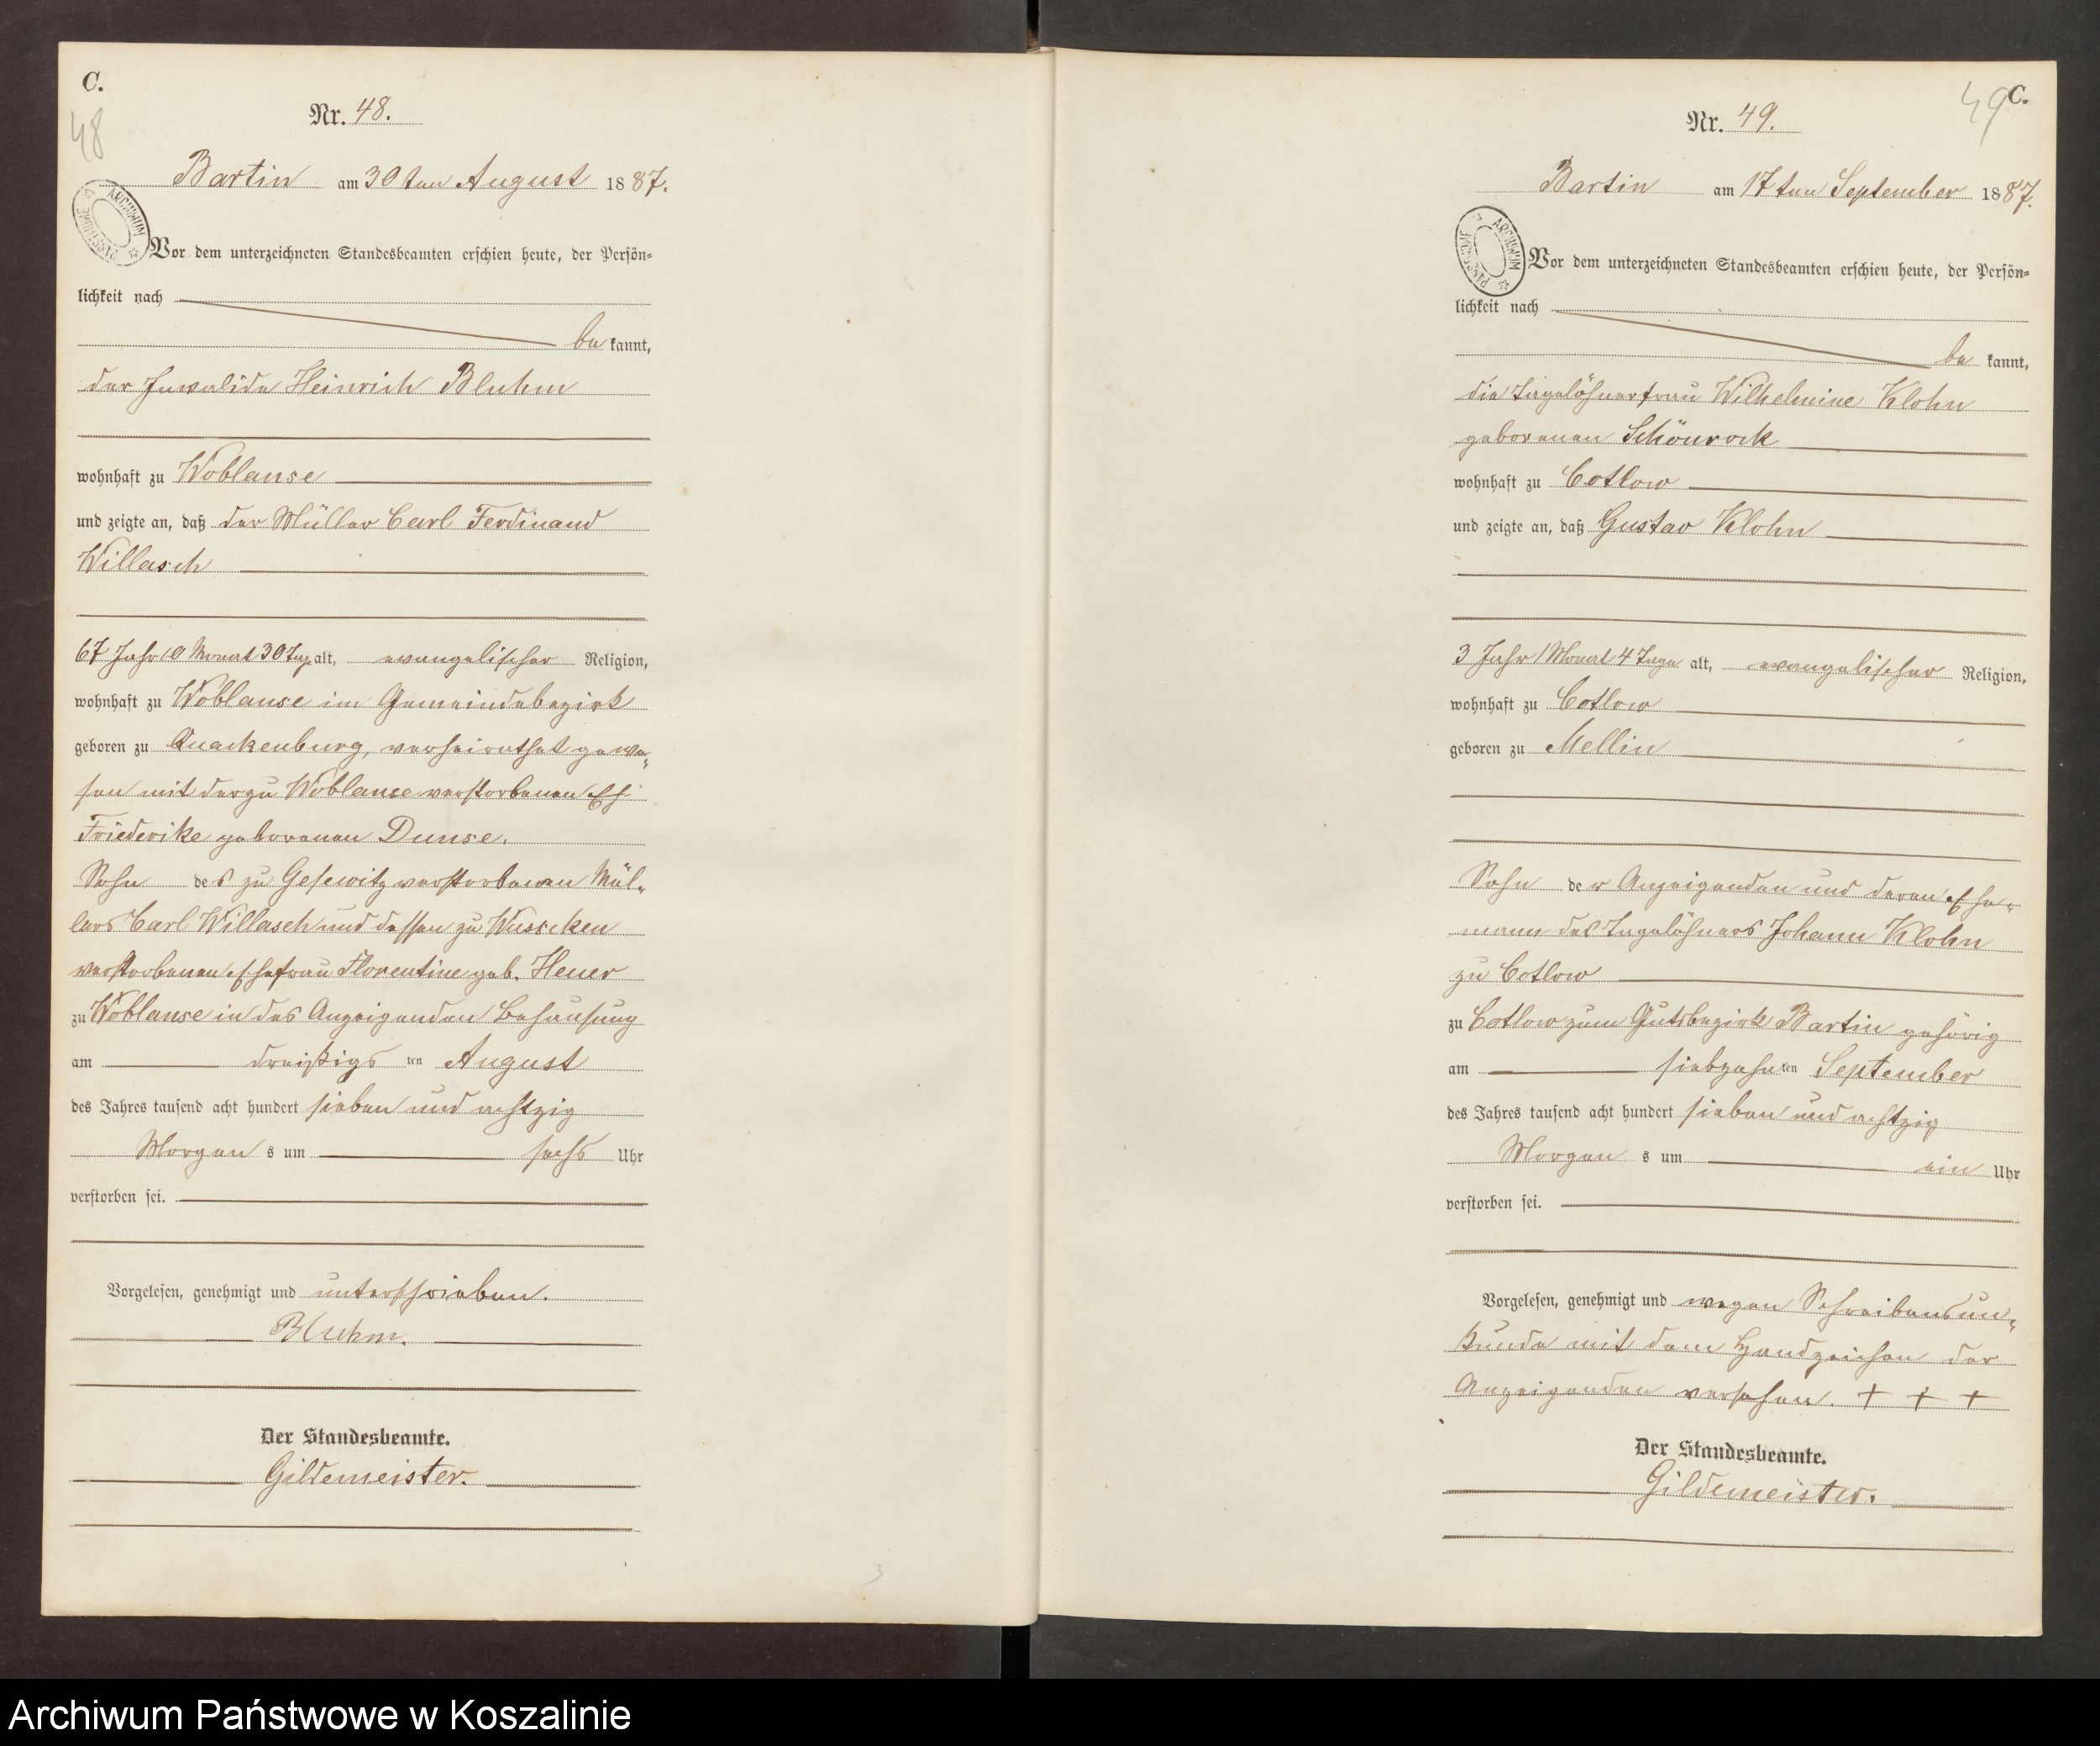 C.
48
Nr. 48.
Bartin am 30ten August 1887.
ARCHIWUM PAŃSTWOWE
Vor dem unterzeichneten Standesbeamten erschien heute, der Persön-
lichkeit nach
be kannt,
der Invalide Heinrich Bluhm
wohnhaft zu Woblanse
und zeigte an, daß der Müller Carl Ferdinand
Willasch
67 Jahr 10 Monat 30 Tag alt, evangelischer Religion,
wohnhaft zu Woblanse im Gemeindebezirk
geboren zu Quackenburg, verheirathet gewe-
sen mit der zu Woblanse verstorbenen
Friederike geborenen Dunse.
Sohn des zu Gesewitz verstorbenen Mül-
lers Carl Willasch und dessen zu Wussken
verstorbenen Ehefrau Florentine geb. Heuer
zu Woblanse in des Anzeigenden Behausung
am dreißigs ten August
des Jahres tausend acht hundert sieben und achtzig
Morgen s um sechs Uhr
verstorben sei.
Vorgelesen, genehmigt und unterschrieben.
Bluhm.
Der Standesbeamte.
Gildemeister.
C.
49
Nr. 49.
Bartin am 17ten September 1887.
ARCHIWUM PAŃSTWOWE
Vor dem unterzeichneten Standesbeamten erschien heute, der Persön-
lichkeit nach
be kannt,
die Tagelöhnerfrau Wilhelmine Klohn
geborenen Schönrock
wohnhaft zu Cotlow
und zeigte an, daß Gustav Klohn
3 Jahr 1 Monat 4 Tage alt, evangelischer Religion,
wohnhaft zu Cotlow
geboren zu Mellin
Sohn der Anzeigenden und deren Ehe-
mann des Tagelöhners Johann Klohn
zu Cotlow
zu Cotlow zum Gutsbezirk Bartin gehörig
am siebzehn ten September
des Jahres tausend acht hundert sieben und achtzig
Morgen s um ein Uhr
verstorben sei.
Vorgelesen, genehmigt und wegen Schreibensun-
kunde mit dem Handzeichen der
Anzeigenden versehen. + + +
Der Standesbeamte.
Gildemeister.
Archiwum Państwowe w Koszalinie